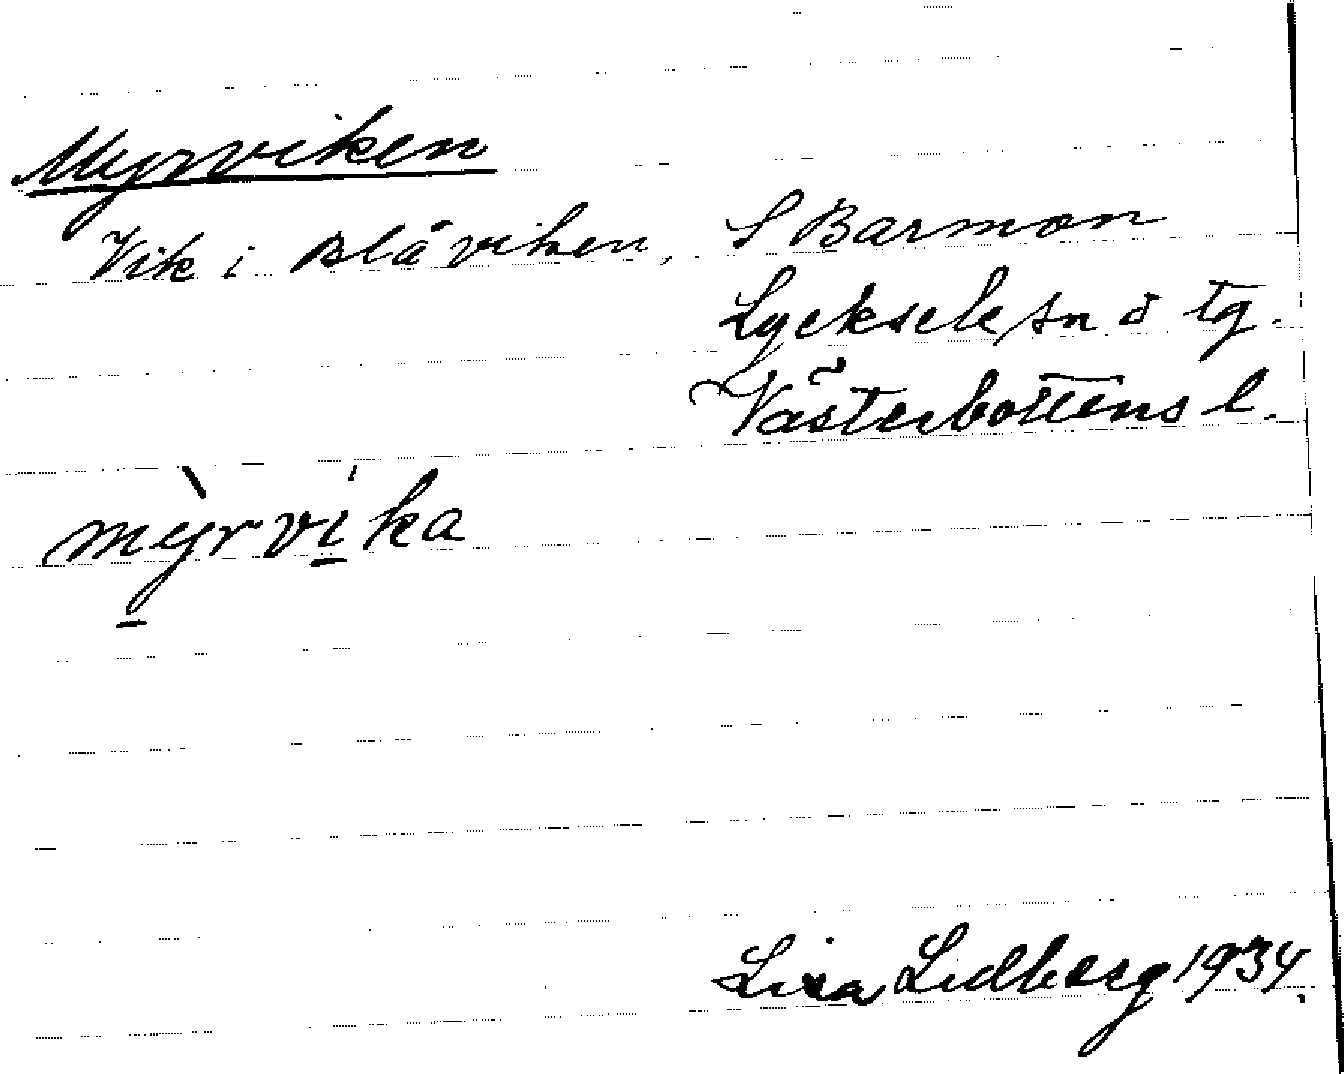 Myrviken
Vik i Blåviken, S Barmon
Lycksele sn o tg.
Västerbottens l.
mỳrvika
Lisa Lidberg 1934.